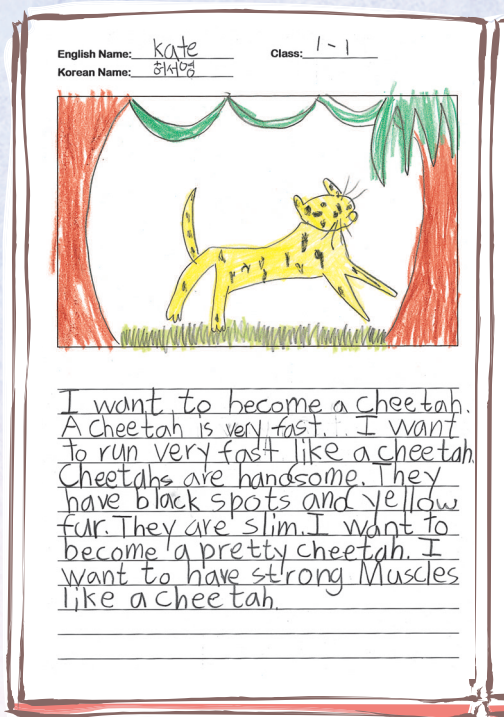 English Name: kate
Class: 1-1
Korean Name: 허서영
I want to become a cheetah.
A cheetah is very fast. I want
to run very fast like a cheetah.
Cheetahs are handsome. They
have black spots and yellow
fur. They are slim. I want to
become a pretty cheetah. I
want to have strong Muscles
like a cheetah.